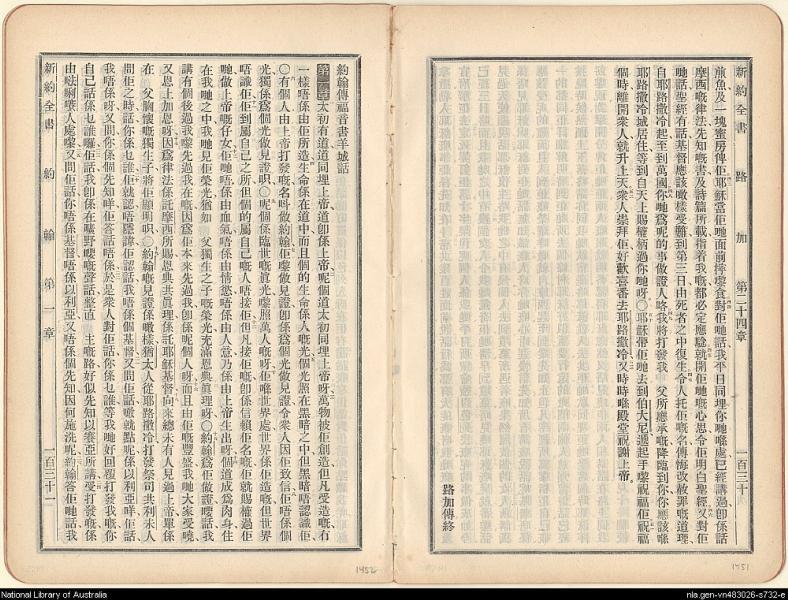 新約全書 路加 第二十四章 一百三十
煎魚及一塊蜜房俾佢耶穌當佢哋面前擰嚟食對佢哋話我平日同埋你哋喺處已經講過卽係話
摩西嘅律法先知嘅書及詩篇所載指着我嘅都必定應驗就開佢哋嘅心思令佢明白聖經又對佢
哋話聖經有話基督應該噉樣受難到第三日由死者之中復生令人托佢嘅名傳悔改赦罪嘅道理
自耶路撒冷起至到萬國你哋爲呢的事做證人咯我將打發我 父所應承嘅降臨到你你應該喺
耶路撒冷城居住等到自天上賜權柄過你哋呀〇耶穌帶佢哋去到伯大尼遞起手嚟祝福佢祝福
個時離開衆人就升上天衆人崇拜佢好歡喜番去耶路撒冷又時時喺殿堂祝謝上帝
路加傳終
約翰傳福音書羊城話
第一章太初有道道同埋上帝道卽係上帝呢個道太初同埋上帝呀萬物被佢創造但凡受造嘅有
一樣唔係由佢所造生命係在道中而且個的生命係人嘅光個光照在黑暗之中但黑暗唔認識佢
〇有個人由上帝打發嘅名呌做約翰佢嚟做見證卽係爲個光做見證令衆人因佢致信佢唔係個
光獨係爲個光做見證呮〇呢個係臨世嘅眞光嚟照萬人嘅呀佢喺世界處世界係佢造嘅但世界
唔識佢佢到屬自己之所但個的屬自己嘅人唔接佢但凡接佢嘅卽係信賴佢名嘅佢就賜權過佢
哋做上帝嘅仔女佢哋唔係由血氣唔係由情慾唔係由人意乃係由上帝生出呀個道成爲肉身住
在我哋之中我哋見佢榮光猶如 父獨生之子嘅榮光充滿恩典眞理呀〇約翰爲佢做證嚟話我
講有個後過我嚟先過我在嘅因爲佢本來先過我卽係呢個人呀而且由佢嘅豐盛我哋大家受嘵
又恩上加恩呀因爲律法係託摩西所賜恩典共眞理係託耶穌基督向來總未有人見過上帝單係
在 父胸懷嘅獨生子將佢顯明呮〇約翰嘅見證係噉樣猶太人從耶路撒冷打發祭司共利未人
問佢之時話你係也誰佢就認唔隱諱佢認話我唔係個基督又問佢話噉就點呢係以利亞咩佢話
我唔係呀又問你係個先知咩佢答話唔係於是衆人對佢話你係也誰等我哋好回覆打發我嘅你
自己話係也誰囉佢話我卽係在曠野嘅聲話整直 主嘅路好似先知以賽亞所講受打發嘅係
由𠵇唎嚟人處嚟又問佢話你唔係基督唔係以利亞又唔係個先知因何施洗呢約翰答佢哋話我
新約全書 約翰 第一章 一百三十一
1452
1451
National Library of Australia
nla.gen-vn483026-s732-e